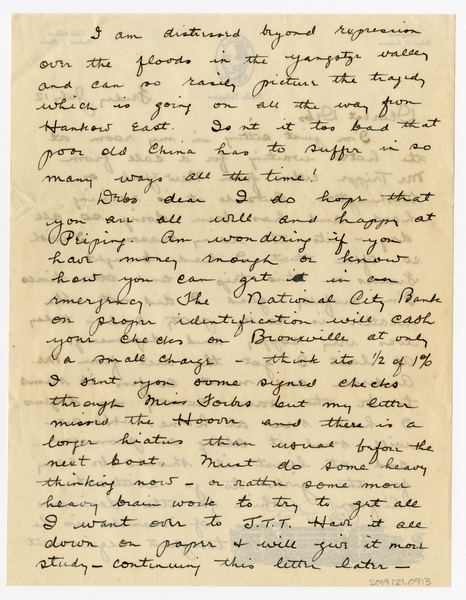 I am distressed beyond expression
over the floods in the Yangstze valley
and can so easily picture the tragedy
which is going on all the way from
Hankow East. Isn't it too bad that
poor old China has to suffer in so
many ways all the time!
Debs dear I do hope that
you are all well and happy at
Peiping. Am wondering if you
have money enough or know
how you can get it in an
emergency. The National City Bank
on proper identification will cash
your checks on Bronxville at only
a small charge - think its 1/2 of 1%
I sent you some signed checks
through Miss Forbes but my letter
missed the Hoover and there is a
longer hiatus than usual before the
next boat. Must do some heavy
thinking now - or rather some more
heavy brain work to try to get all
I want over to J.T.T. Have it all
down on paper & will give it more
study - continuing this letter later -
2019.121.0913